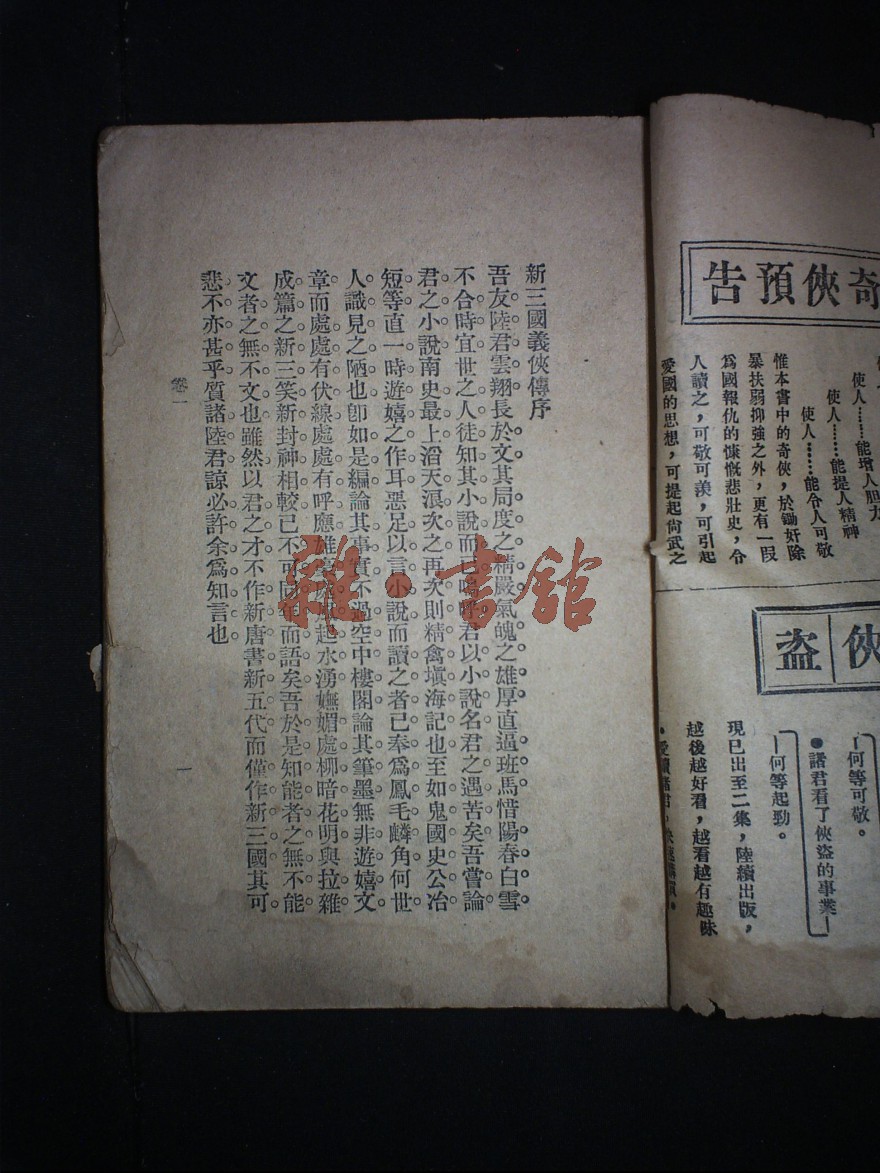 奇俠預告
使人……能增人胆力
使人……能提人精神
使人……能令人可敬
惟本書中的奇俠，於鋤奸除
暴扶弱抑強之外，更有一段
爲國報仇的慷慨悲壯史，令
人讀之，可敬可羨，可引起
愛國的思想，可提起尙武之
俠盜
何等可敬。
●諸君看了俠盜的事業
何等起勁。
現已出至二集，陸續出版，
越後越好看，越看越有趣味
新三國義俠傳序
吾友陸君雲翔長於文其局度之精嚴氣魄之雄厚直逼班馬惜陽春白雪。
不合時宜世之人徒知其小說而已嗚呼君以小說名君之遇苦矣吾嘗論
君之小說南史最上滔天浪次之再次則精禽塡海記也至如鬼國史公冶
短等直一時遊嬉之作耳惡足以言小說而讀之者已奉爲鳳毛麟角何世
人識見之陋也卽如是編論其事實不過空中樓閣論其筆墨無非遊嬉文
章而處處有伏線處處有呼應雄處起水湧嫵媚處柳暗花明與拉雜
成篇之新三笑新封神相較已不可同年而語矣吾於是知能者之無不能
文者之無不文也雖然以君之才不作新唐書新五代而僅作新三國其可
悲不亦甚乎質諸陸君諒必許余爲知言也。
卷一
一
雜·書館